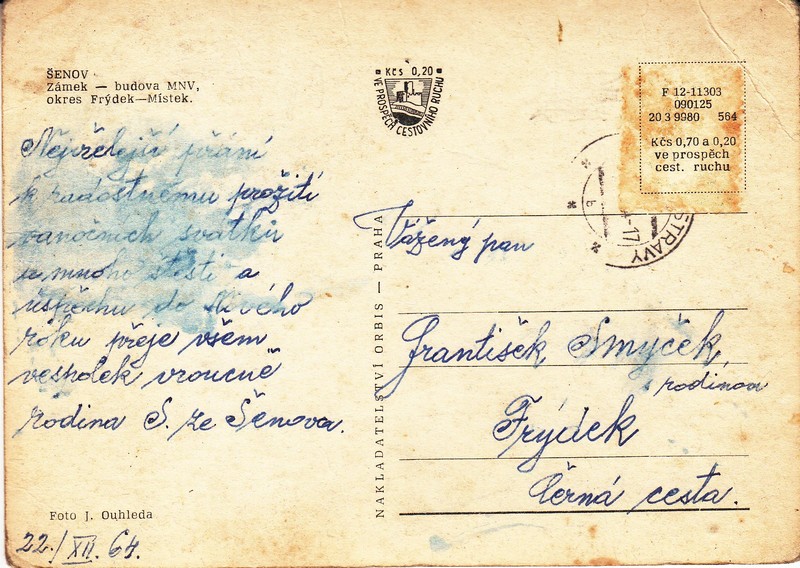 ŠENOV
Zámek — budova MNV,
okres Frýdek—Místek.
Kčs 0,20
VE PROSPĚCH CESTOVNÍHO RUCHU
F 12-11303
090125
20 3 9980 564
Kčs 0,70 a 0,20
ve prospěch
cest. ruchu
6
-17
STRAVY
Nejvřelejší přání
k radostnému prožití
vanočních svátků
a mnoho štěstí a
úspěchu do Nového
roku přeje všem
vesholek vroucně
rodina S. ze Šenova.
Foto J. Ouhleda
22./XII. 64.
NAKLADATELSTVÍ ORBIS — PRAHA
Vážený pan
František Smyček
s rodinou
Frýdek
Černá cesta.